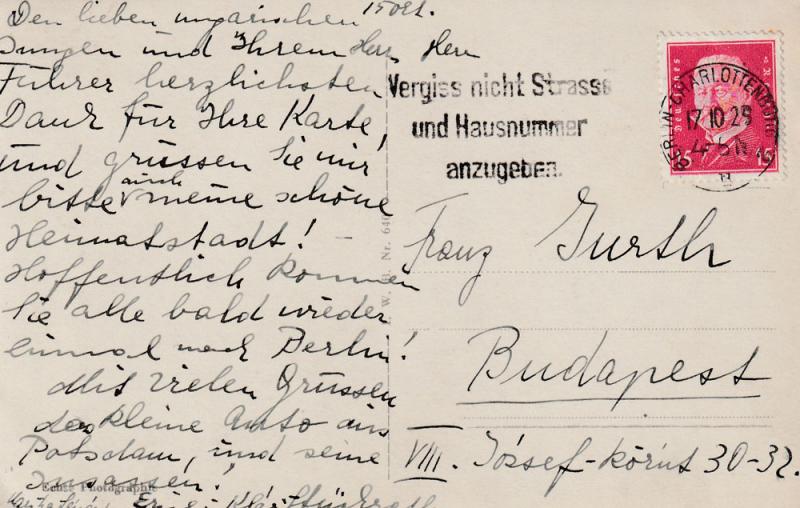 Den lieben ungarischen
Jungen und Ihrem Herrn
Führer herzlichsten
Dank für Ihre Karte,
und grüssen Sie mir
bitte auch meine schöne
Heimatstadt! –
Hoffentlich kommen
Sie alle bald wieder
einmal nach Berlin!
Mit vielen Grüssen
das kleine Auto aus
Potsdam, und seine
Insassen!
Echte Photographie
Vergiss nicht Strasse
und Hausnummer
anzugeben.
BERLIN-CHARLOTTENBURG
17.10.29
4-5 N
15
Nr. 640
Franz Gurth
Budapest
VIII. József-körut 30-32.